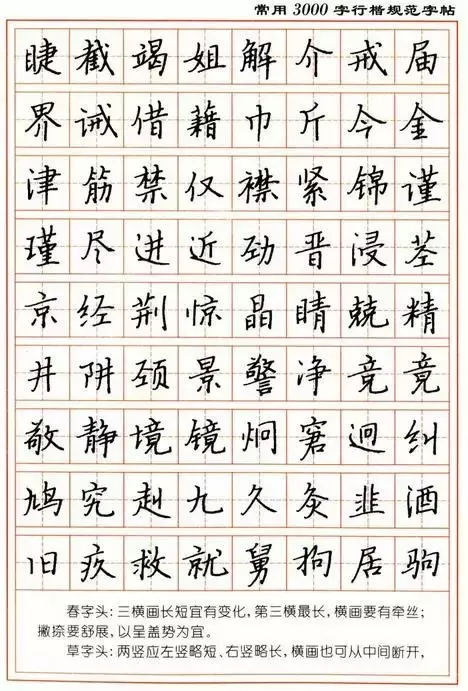 常用3000字行楷规范字帖
睫截竭姐解介戒届
界诫借藉巾斤今金
津筋禁仅襟紧锦谨
瑾尽进近劲晋浸茎
京经荆惊晶睛兢精
井阱颈景警净竞竟
敬静境镜炯窘迥纠
鸠究赳九久灸韭酒
旧疚救就舅拘居驹
春字头:三横画长短宜有变化,第三横最长,横画要有牵丝;
撇捺要舒展,以呈盖势为宜。
草字头:两竖应左竖略短、右竖略长,横画也可从中间断开,